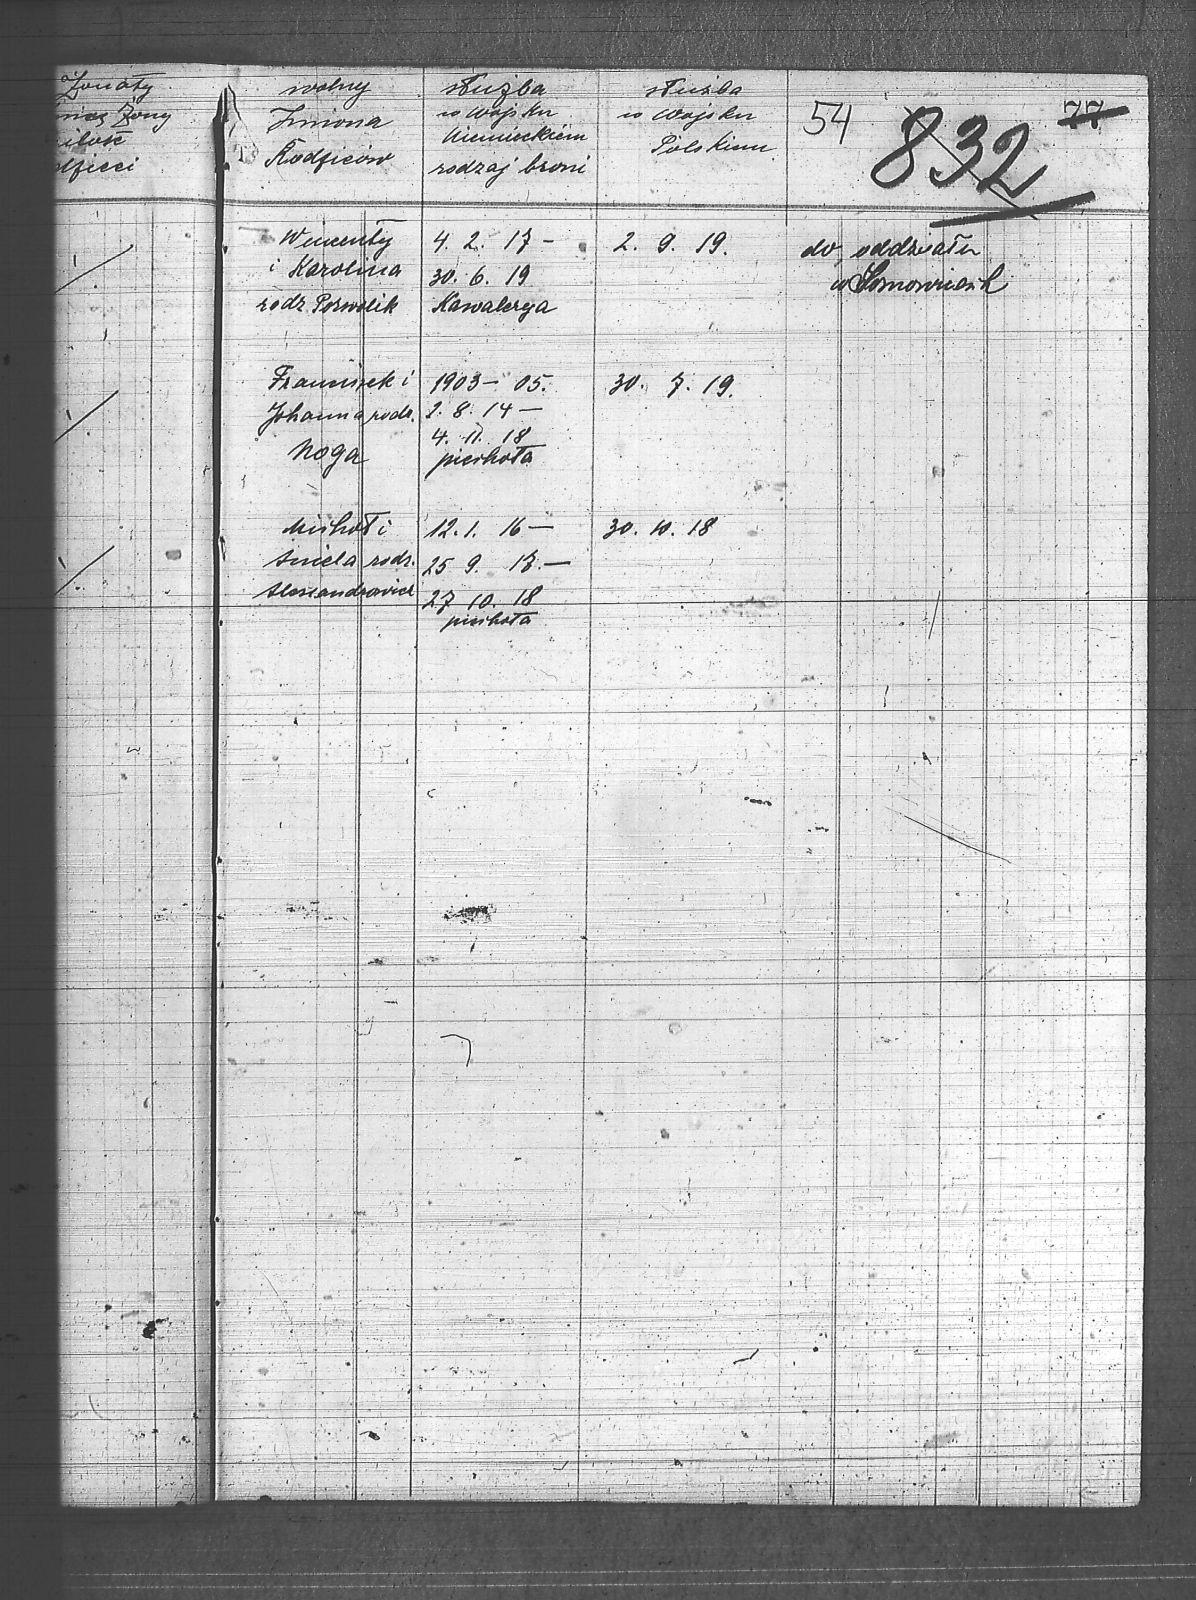 Żonaty
Żony
ilość
wolny
Imiona
Rodziców
służba
w wojsku
Niemieckiem
rodzaj broni
służba
w wojsku
Polskiem
54
832
77
Wincenty
i Karolina
rodz
4. 2. 17 -
30. 6. 19
Kawalerya
2. 9. 19.
do oddziału
w
Franciszek i
Johanna rodz.
Noga
1903 - 05.
2. 8. 14 -
4. 11. 18
piechota
30. 7. 19.
Michał i
Aniela rodz.
12. 1. 16 -
25 9. 17. -
27 10. 18
piechota
30. 10. 18